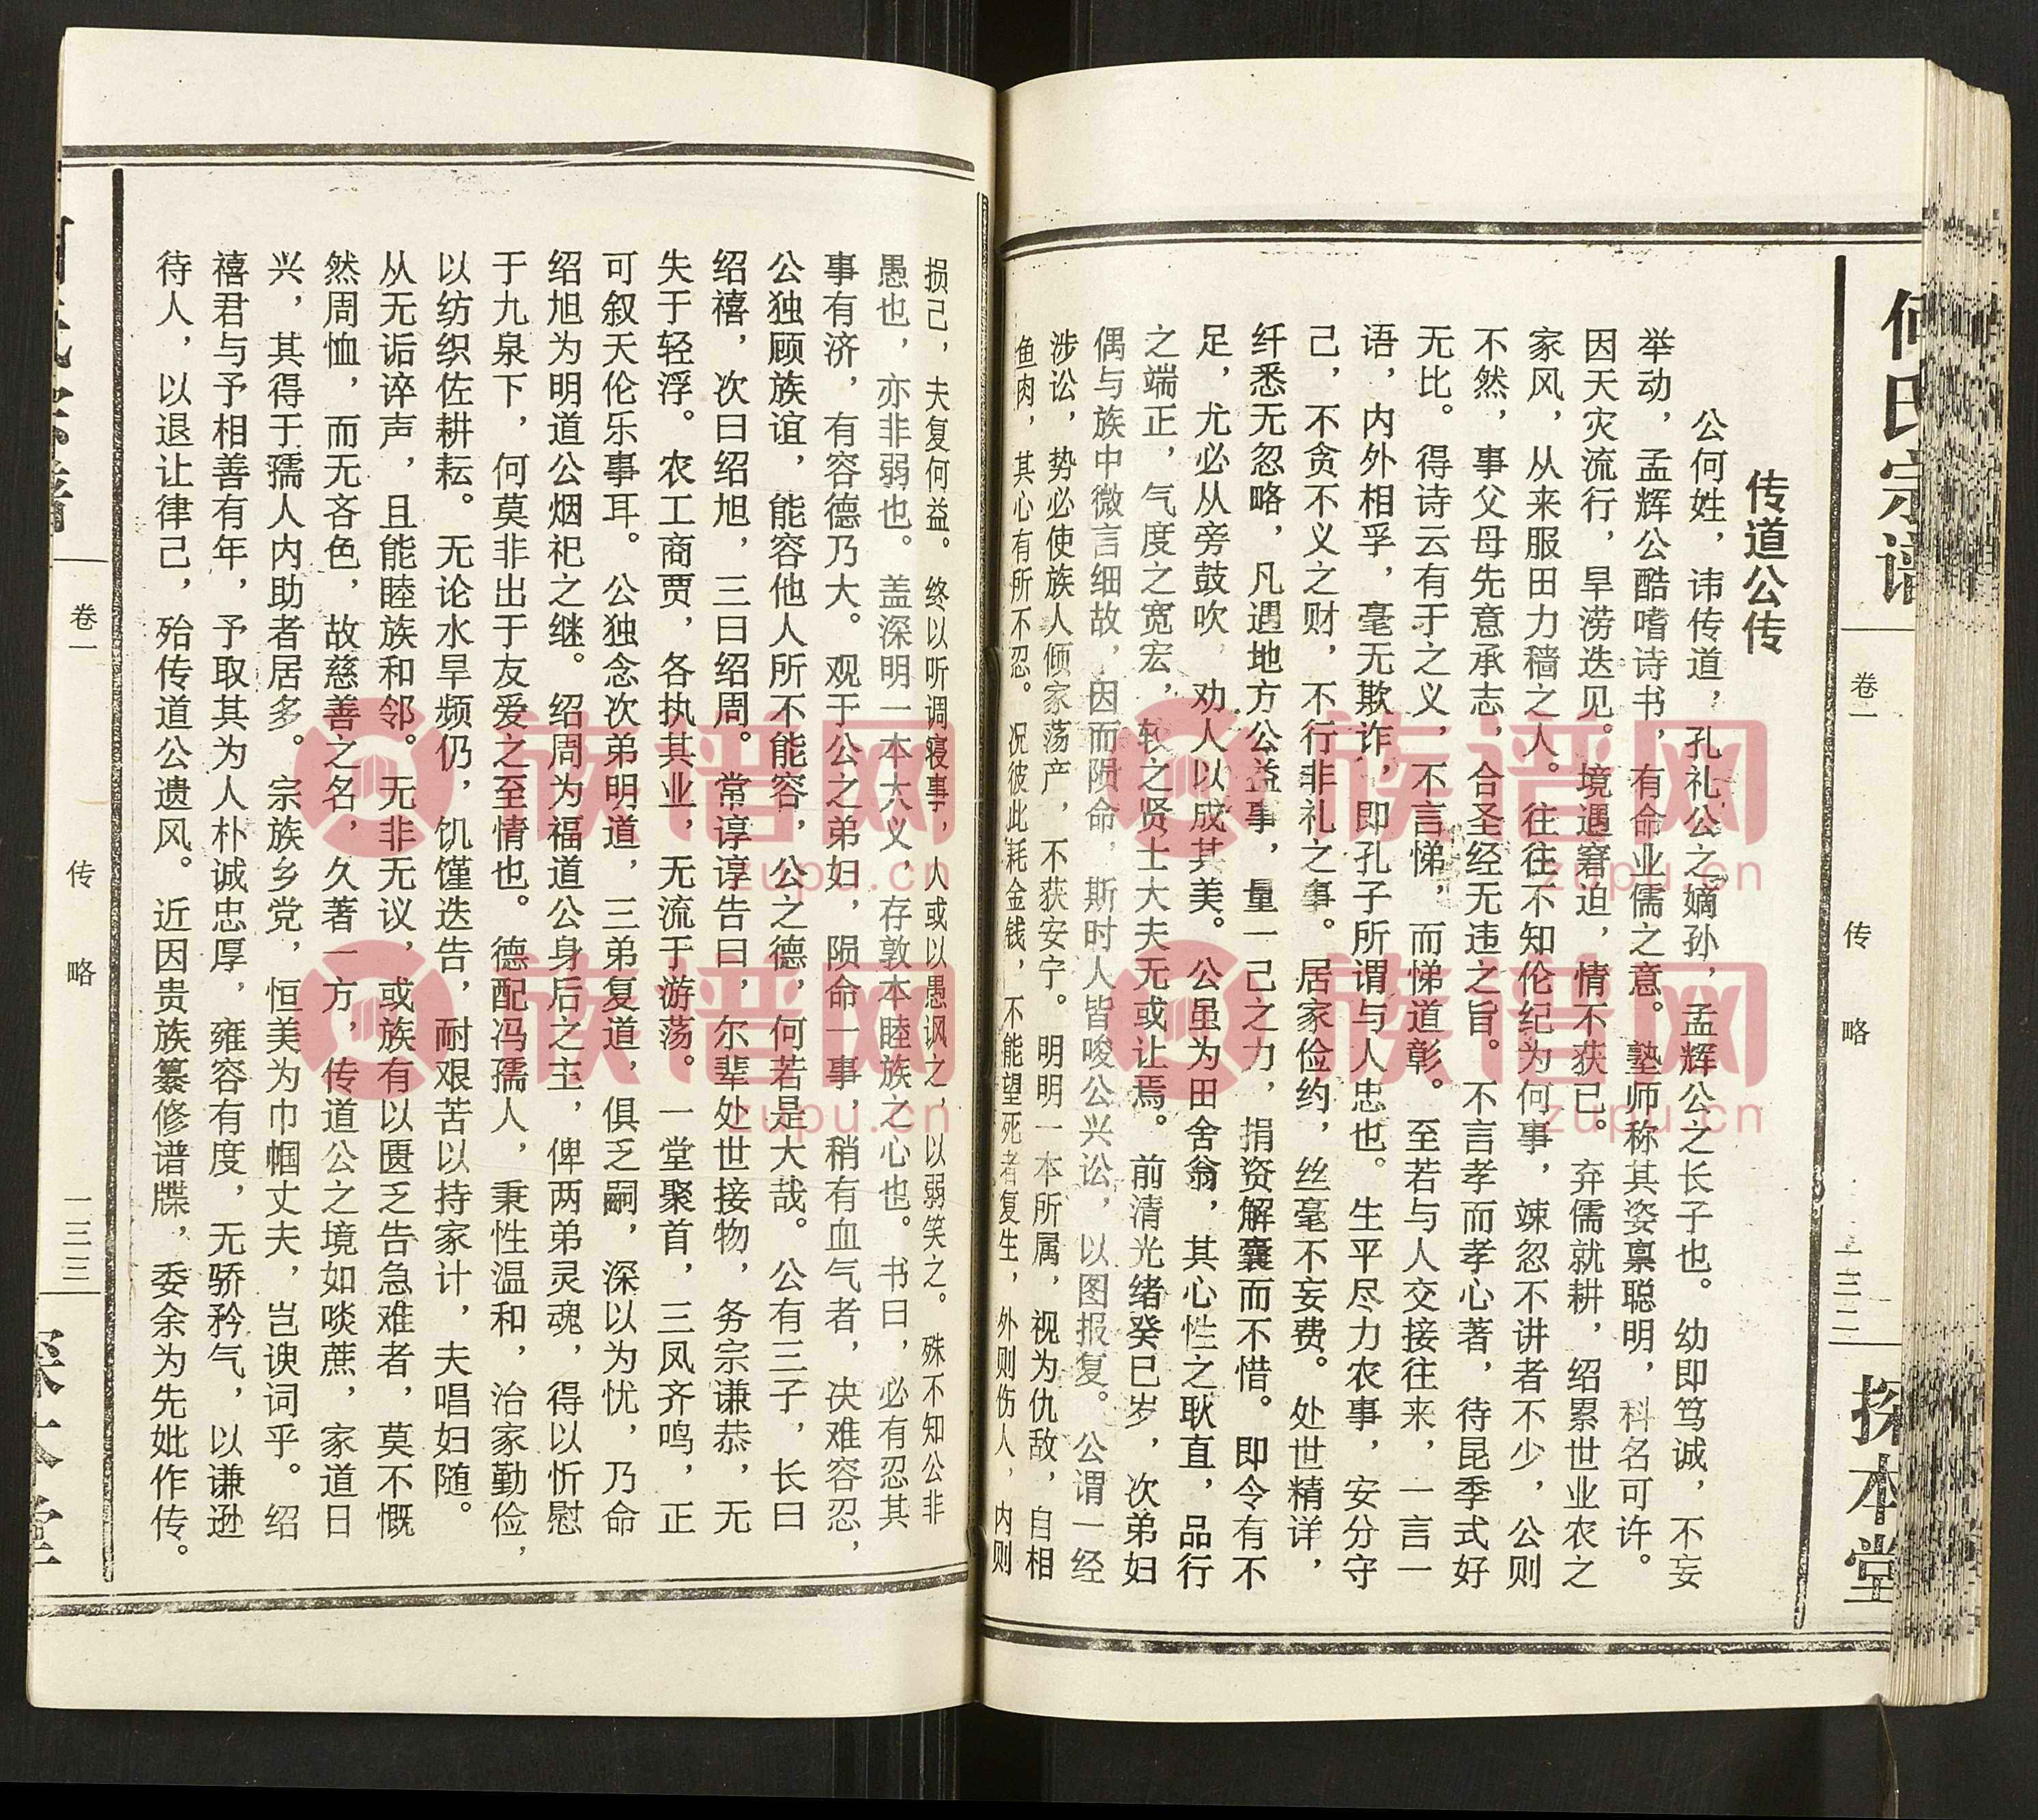 何氏宗谱
卷一
传略
一三二
探本堂
传道公传
公何姓，讳传道，孔礼公之嫡孙，孟辉公之长子也。幼即笃诚，不妄
举动，孟辉公酷嗜诗书，有命业儒之意。塾师称其姿禀聪明，科名可许。
因天灾流行，旱涝迭见。境遇窘迫，情不获已。弃儒就耕，绍累世业农之
家风，从来服田力穑之人。往往不知伦纪为何事，竦忽不讲者不少，公则
不然，事父母先意承志，合圣经无违之旨。不言孝而孝心著，待昆季式好
无比。得诗云有于之义，不言悌，而悌道彰。至若与人交接往来，一言一
语，内外相孚，毫无欺诈，即孔子所谓与人忠也。生平尽力农事，安分守
己，不贪不义之财，不行非礼之事。居家俭约，丝毫不妄费。处世精详，
纤悉无忽略，凡遇地方公益事，量一己之力，捐资解囊而不惜。即令有不
足，尤必从旁鼓吹，劝人以成其美。公虽为田舍翁，其心性之耿直，品行
之端正，气度之宽宏，较之贤士大夫无或让焉。前清光绪癸巳岁，次弟妇
偶与族中微言细故，因而陨命，斯时人皆唆公兴讼，以图报复。公谓一经
涉讼，势必使族人倾家荡产，不获安宁。明明一本所属，视为仇敌，自相
鱼肉，其心有所不忍。况彼此耗金钱，不能望死者复生，外则伤人，内则
损己，夫复何益。终以听调寝事，人或以愚讽之，以弱笑之。殊不知公非
愚也，亦非弱也。盖深明一本大义，存敦本睦族之心也。书曰，必有忍其
事有济，有容德乃大。观于公之弟妇，陨命一事，稍有血气者，决难容忍，
公独顾族谊，能容他人所不能容，公之德，何若是大哉。公有三子，长曰
绍禧，次曰绍旭，三曰绍周。常谆谆告曰，尔辈处世接物，务宗谦恭，无
失于轻浮。农工商贾，各执其业，无流于游荡。一堂聚首，三凤齐鸣，正
可叙天伦乐事耳。公独念次弟明道，三弟复道，俱乏嗣，深以为忧，乃命
绍旭为明道公烟祀之继。绍周为福道公身后之主，俾两弟灵魂，得以忻慰
于九泉下，何莫非出于友爱之至情也。德配冯孺人，秉性温和，治家勤俭，
以纺织佐耕耘。无论水旱频仍，饥馑迭告，耐艰苦以持家计，夫唱妇随。
从无诟谇声，且能睦族和邻。无非无议，或族有以匮乏告急难者，莫不慨
然周恤，而无吝色，故慈善之名，久著一方，传道公之境如啖蔗，家道日
兴，其得于孺人内助者居多。宗族乡党，恒美为巾帼丈夫，岂谀词乎。绍
禧君与予相善有年，予取其为人朴诚忠厚，雍容有度，无骄矜气，以谦逊
待人，以退让律己，殆传道公遗风。近因贵族纂修谱牒，委余为先妣作传。
卷一
传略
一三三